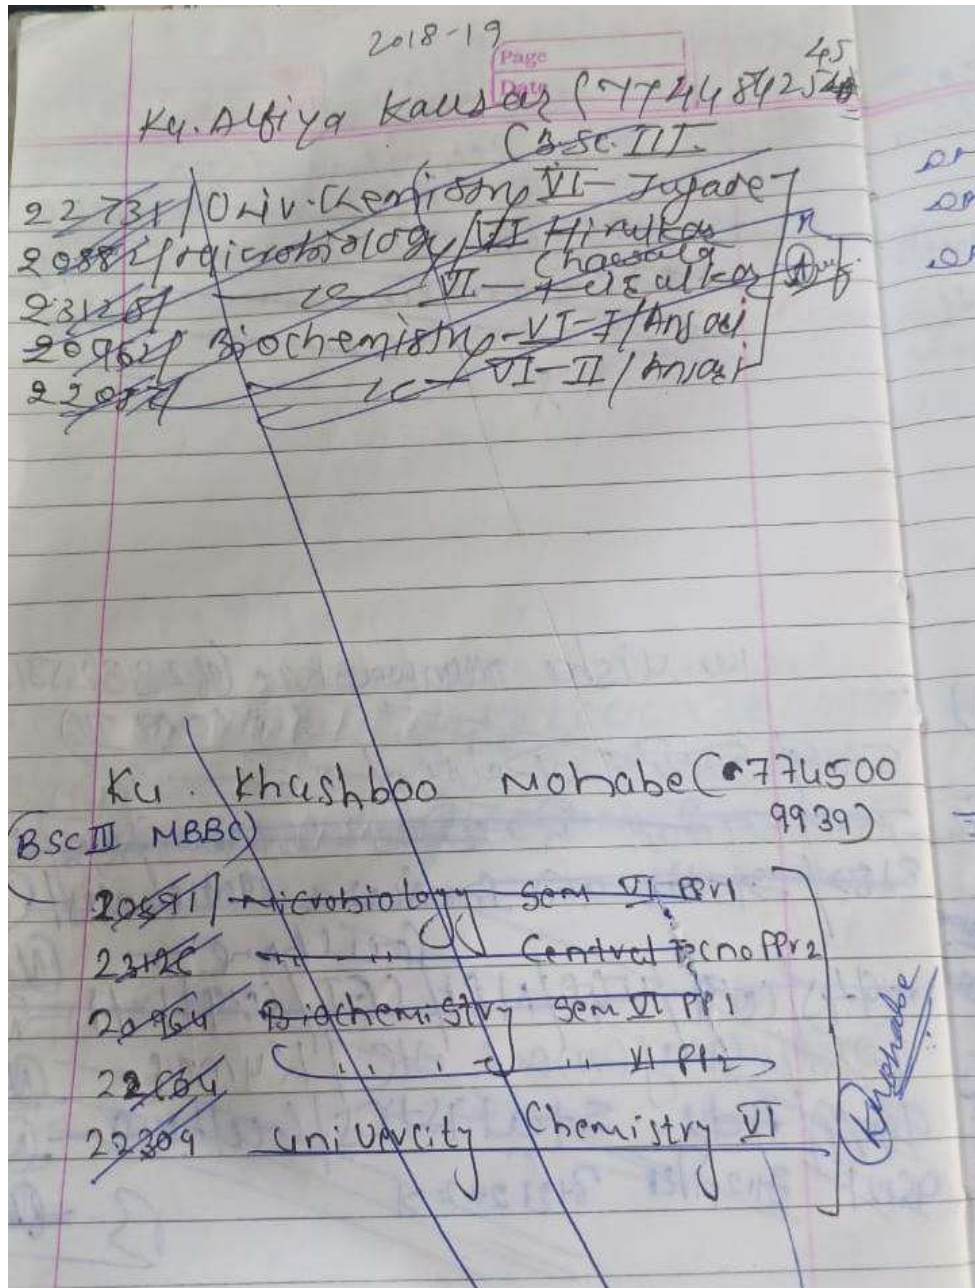 2018-19
Page
Date
45
Ku. Alfiya Kausar (774484254
(B.Sc. III.
22731/ Univ. Chemistry VI - Jugade
20882/ Microbiology / VI Hirulkar
Chaesata
23128/ —〃— VI —
20962/ Biochemistry - VI - I / Ansari
—〃— VI - II / Ansari
Ku. Khushboo Mohabe (774500
9939)
(BSC III MBBC)
20591/ Microbiology Sem VI PPr1
2312 〃 〃 Central Tecno PPr2
20964 Biochemistry Sem VI PP1
22 64 〃 〃 〃 VI PPr2
22309 Univercity Chemistry VI
Kmohabe